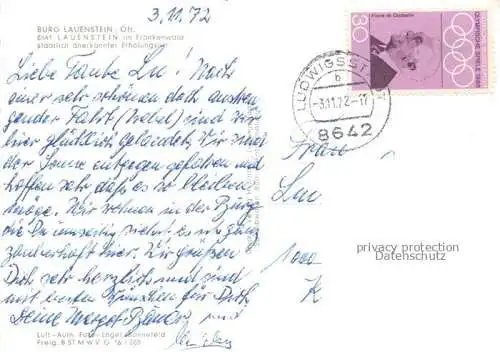 3.11.72
BURG LAUENSTEIN · Ofr.
8641 LAUENSTEIN im Frankenwald
staatlich anerkannter Erholungsort
Liebe Tante Lu! Nach
einer sehr schönen doch anstren-
gender Fahrt (Nebel) sind wir
hier glücklich gelandet. Wir sind
der Sonne entgegen gefahren und
hoffen sehr daß es so bleiben
möge. Wir wohnen in der Burg
die Du umseitig siehst. Es ist ganz
zauberhaft hier. Wir grüßen
Dich sehr herzlich und sind
mit guten Wünschen für Dich
Deine Margot und
Luft-Aufn. Foto-Engel
Freig. B ST M W V G 16/
30
Pierre de Coubertin
OLYMPISCHE SPIELE 1968
LUDWIGSST
b
-3.11.72-17
8642
Frau
Lu
1000
K
privacy protection
Datenschutz